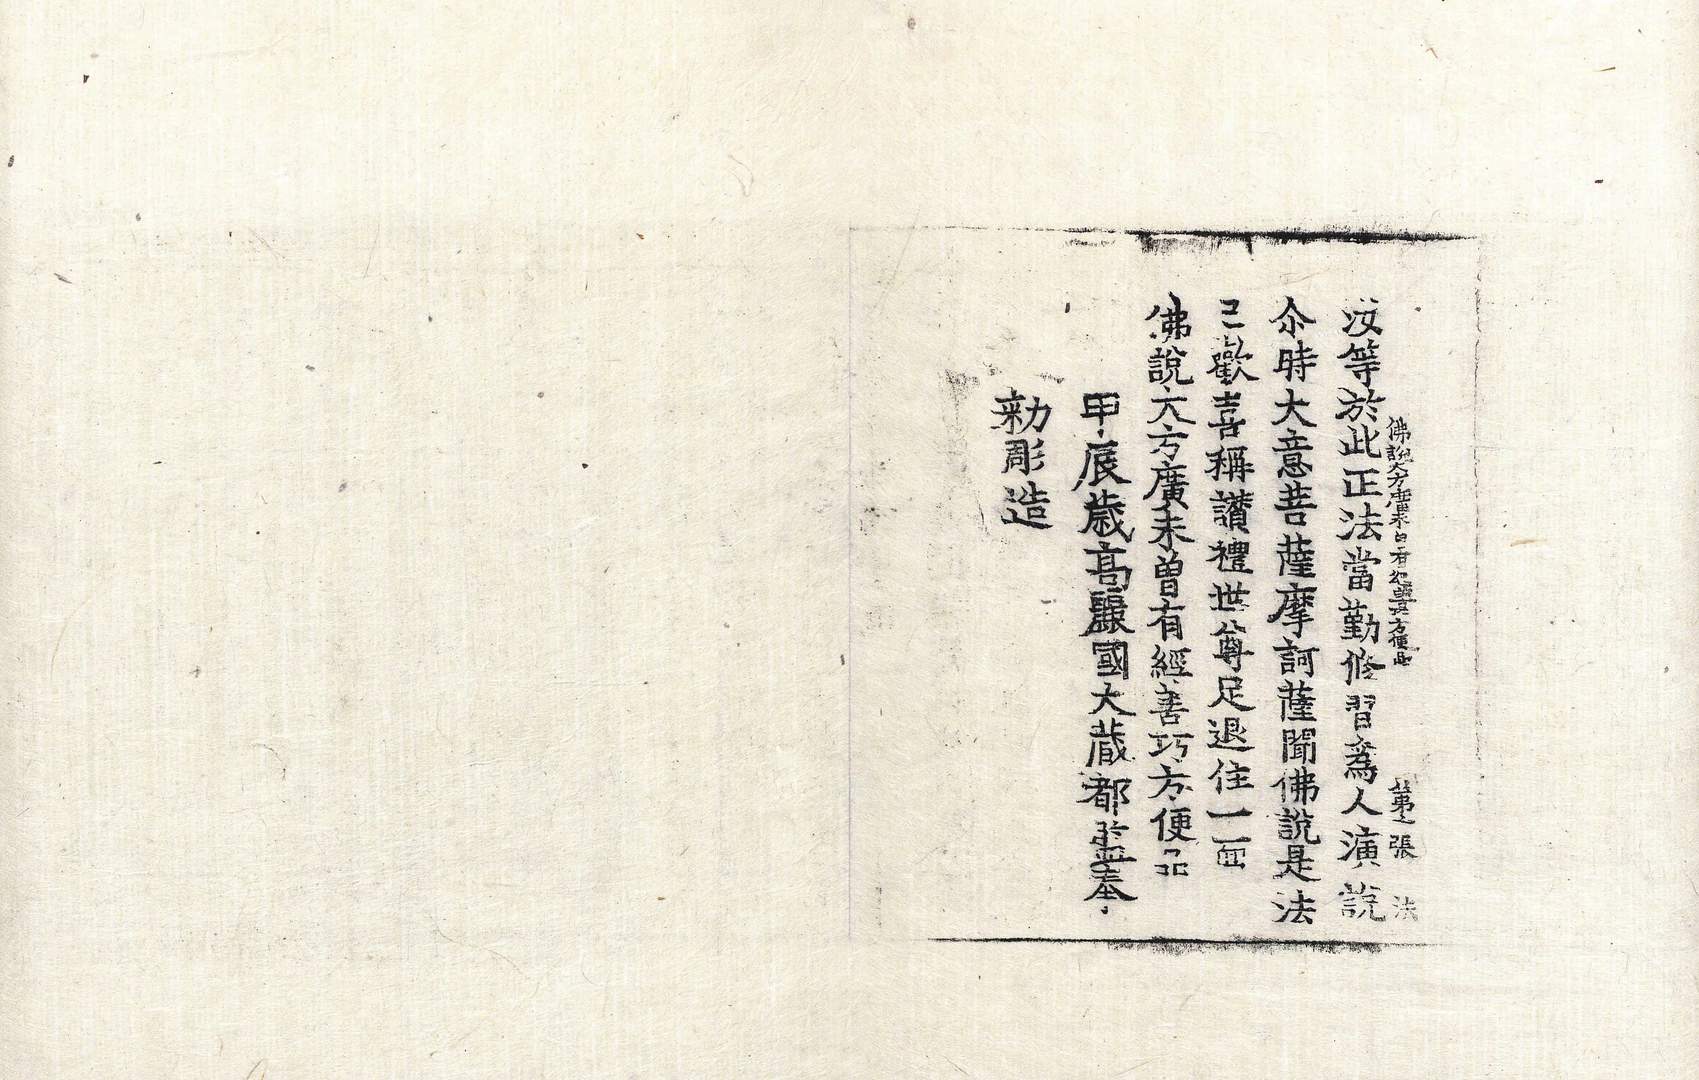 佛說大方廣未曾有經善巧方便品 第 張 法
汝等於此正法當勤修習為人演說
尒時大意菩薩摩訶薩聞佛說是法
已歡喜稱讃禮世尊足退住一面
佛說大方廣未曽有經善巧方便品
甲辰歳高麗國大蔵都監奉
勑彫造